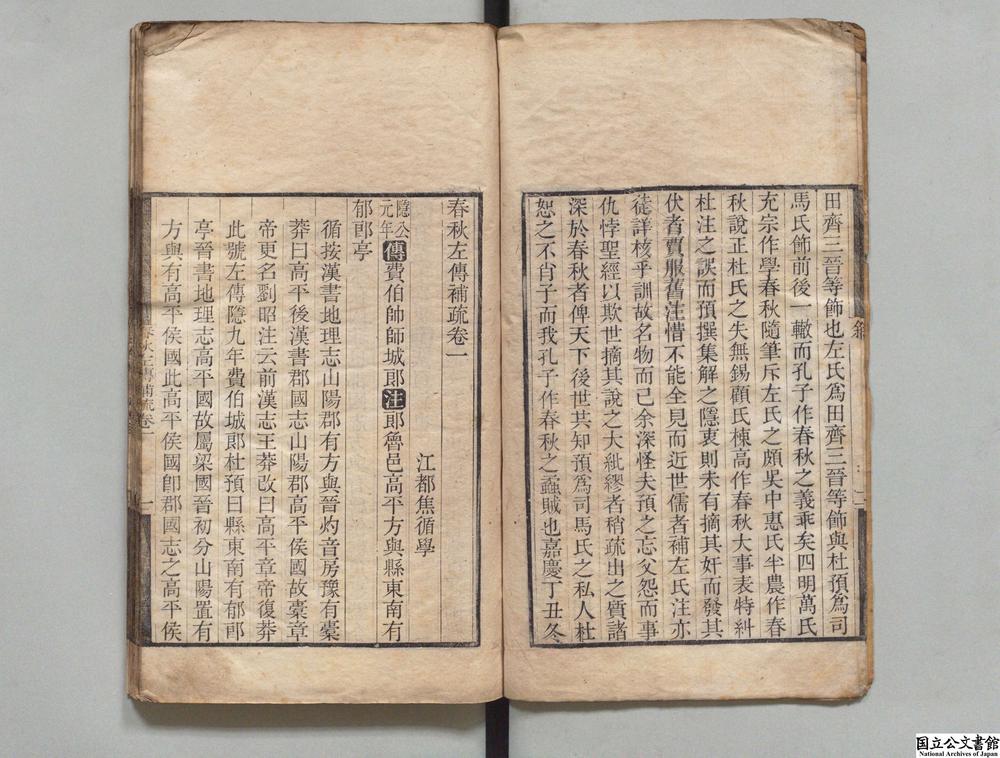 田齊三晉等飾也左氏爲田齊三晉等飾與杜預爲司
馬氏飾前後一轍而孔子作春秋之義乖矣四明萬氏
充宗作學春秋隨筆斥左氏之頗吳中惠氏半農作春
秋說正杜氏之失無錫顧氏棟高作春秋大事表特糾
杜注之誤而預撰集解之隱衷則未有摘其奸而發其
伏者賈服舊注惜不能全見而近世儒者補左氏注亦
徒詳核乎訓故名物而已余深怪夫預之忘父怨而事
仇悖聖經以欺世摘其說之大紕繆者稍疏出之質諸
深於春秋者俾天下後世共知預爲司馬氏之私人杜
恕之不肖子而我孔子作春秋之蟊賊也嘉慶丁丑冬
敘
二
春秋左傳補疏卷一
江都焦循學
隱公元年傳費伯帥師城郎注郎魯邑高平方與縣東南有
郁郎亭
循按漢書地理志山陽郡有方與晉灼音房豫有橐
莽曰高平後漢書郡國志山陽郡高平侯國故橐章
帝更名劉昭注云前漢志王莽改曰高平章帝復莽
此號左傳隱九年費伯城郎杜預曰縣東南有郁郎
亭晉書地理志高平國故屬梁國晉初分山陽置有
方與有高平侯國此高平侯國卽郡國志之高平侯
春秋左傳補疏卷一
一
国立公文書館
National Archives of Japan